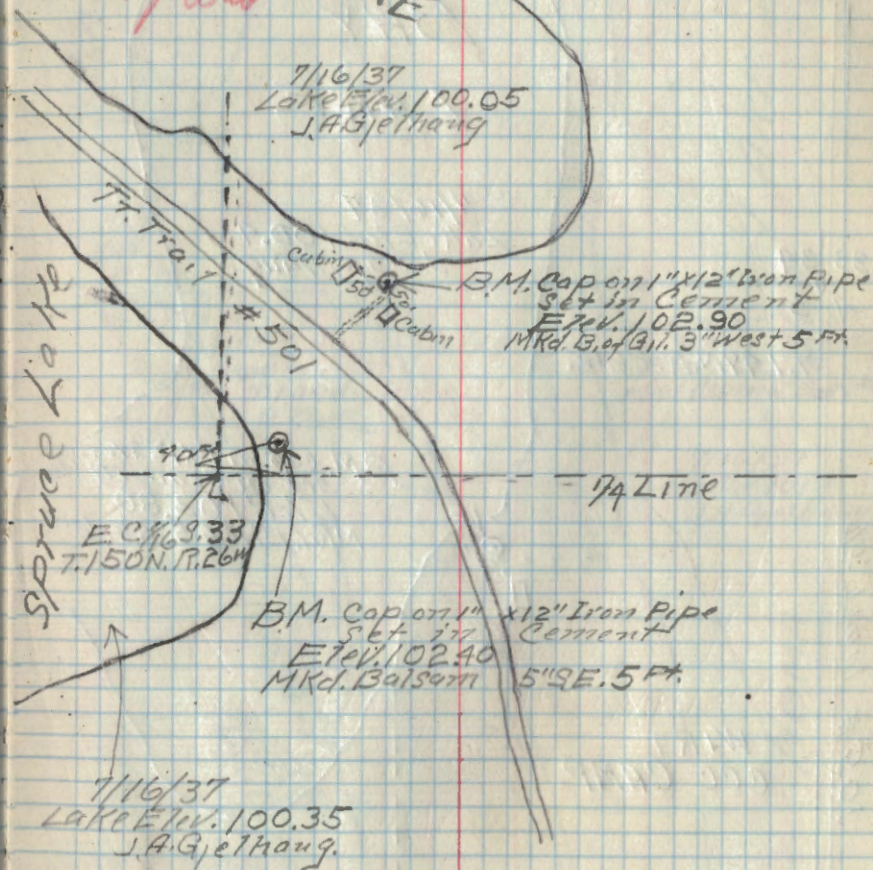 7/16/37
Lake Elev. 100.05
J.A.Gjelhaug
Tr. Trail #501
Cabin
50
50
Cabin
B.M. Cap on 1"x12" Iron Pipe
Set in Cement
Elev. 102.90
Mkd. B. of Gil. 3" West 5 Ft.
Spruce Lake
40ft
1/4 Line
E.C. 1/16 S.33
T.150N. R.26W
B.M. Cap on 1" x12" Iron Pipe
Set in Cement
Elev. 102.40
Mkd. Balsam 5" SE. 5 Ft.
7/16/37
Lake Elev. 100.35
J.A.Gjelhaug.